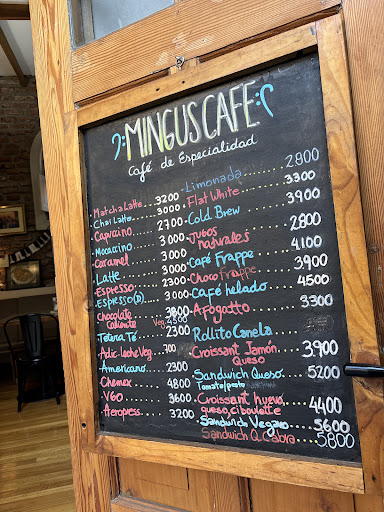 MINGUS CAFE
Café de Especialidad
Matcha Latte 3200
Chai Latte 3000
Capuccino 2700
Mocaccino 3000
Caramel 3000
Latte 3000
Espresso 2300
Espresso (D) 3000
Chocolate caliente 3800
Veg. 4500
Tetera Té 2300
Adic. leche Veg. 700
Americano 2300
Chemex 4800
V60 3600
Aeropess 3200
Limonada 2800
Flat White 3300
Cold Brew 3900
Jugos naturales 2.800
Café Frappe 4.100
Choco Frappe 3.900
Café helado 4500
Afogatto 3300
Rollito Canela
Croissant Jamón Queso 3.900
Sandwich Queso 5200
Tomate/pesto
Croissant huevo, queso, ciboulette 4400
Sandwich Vegano 5600
Sandwich Q. Cabra 5800